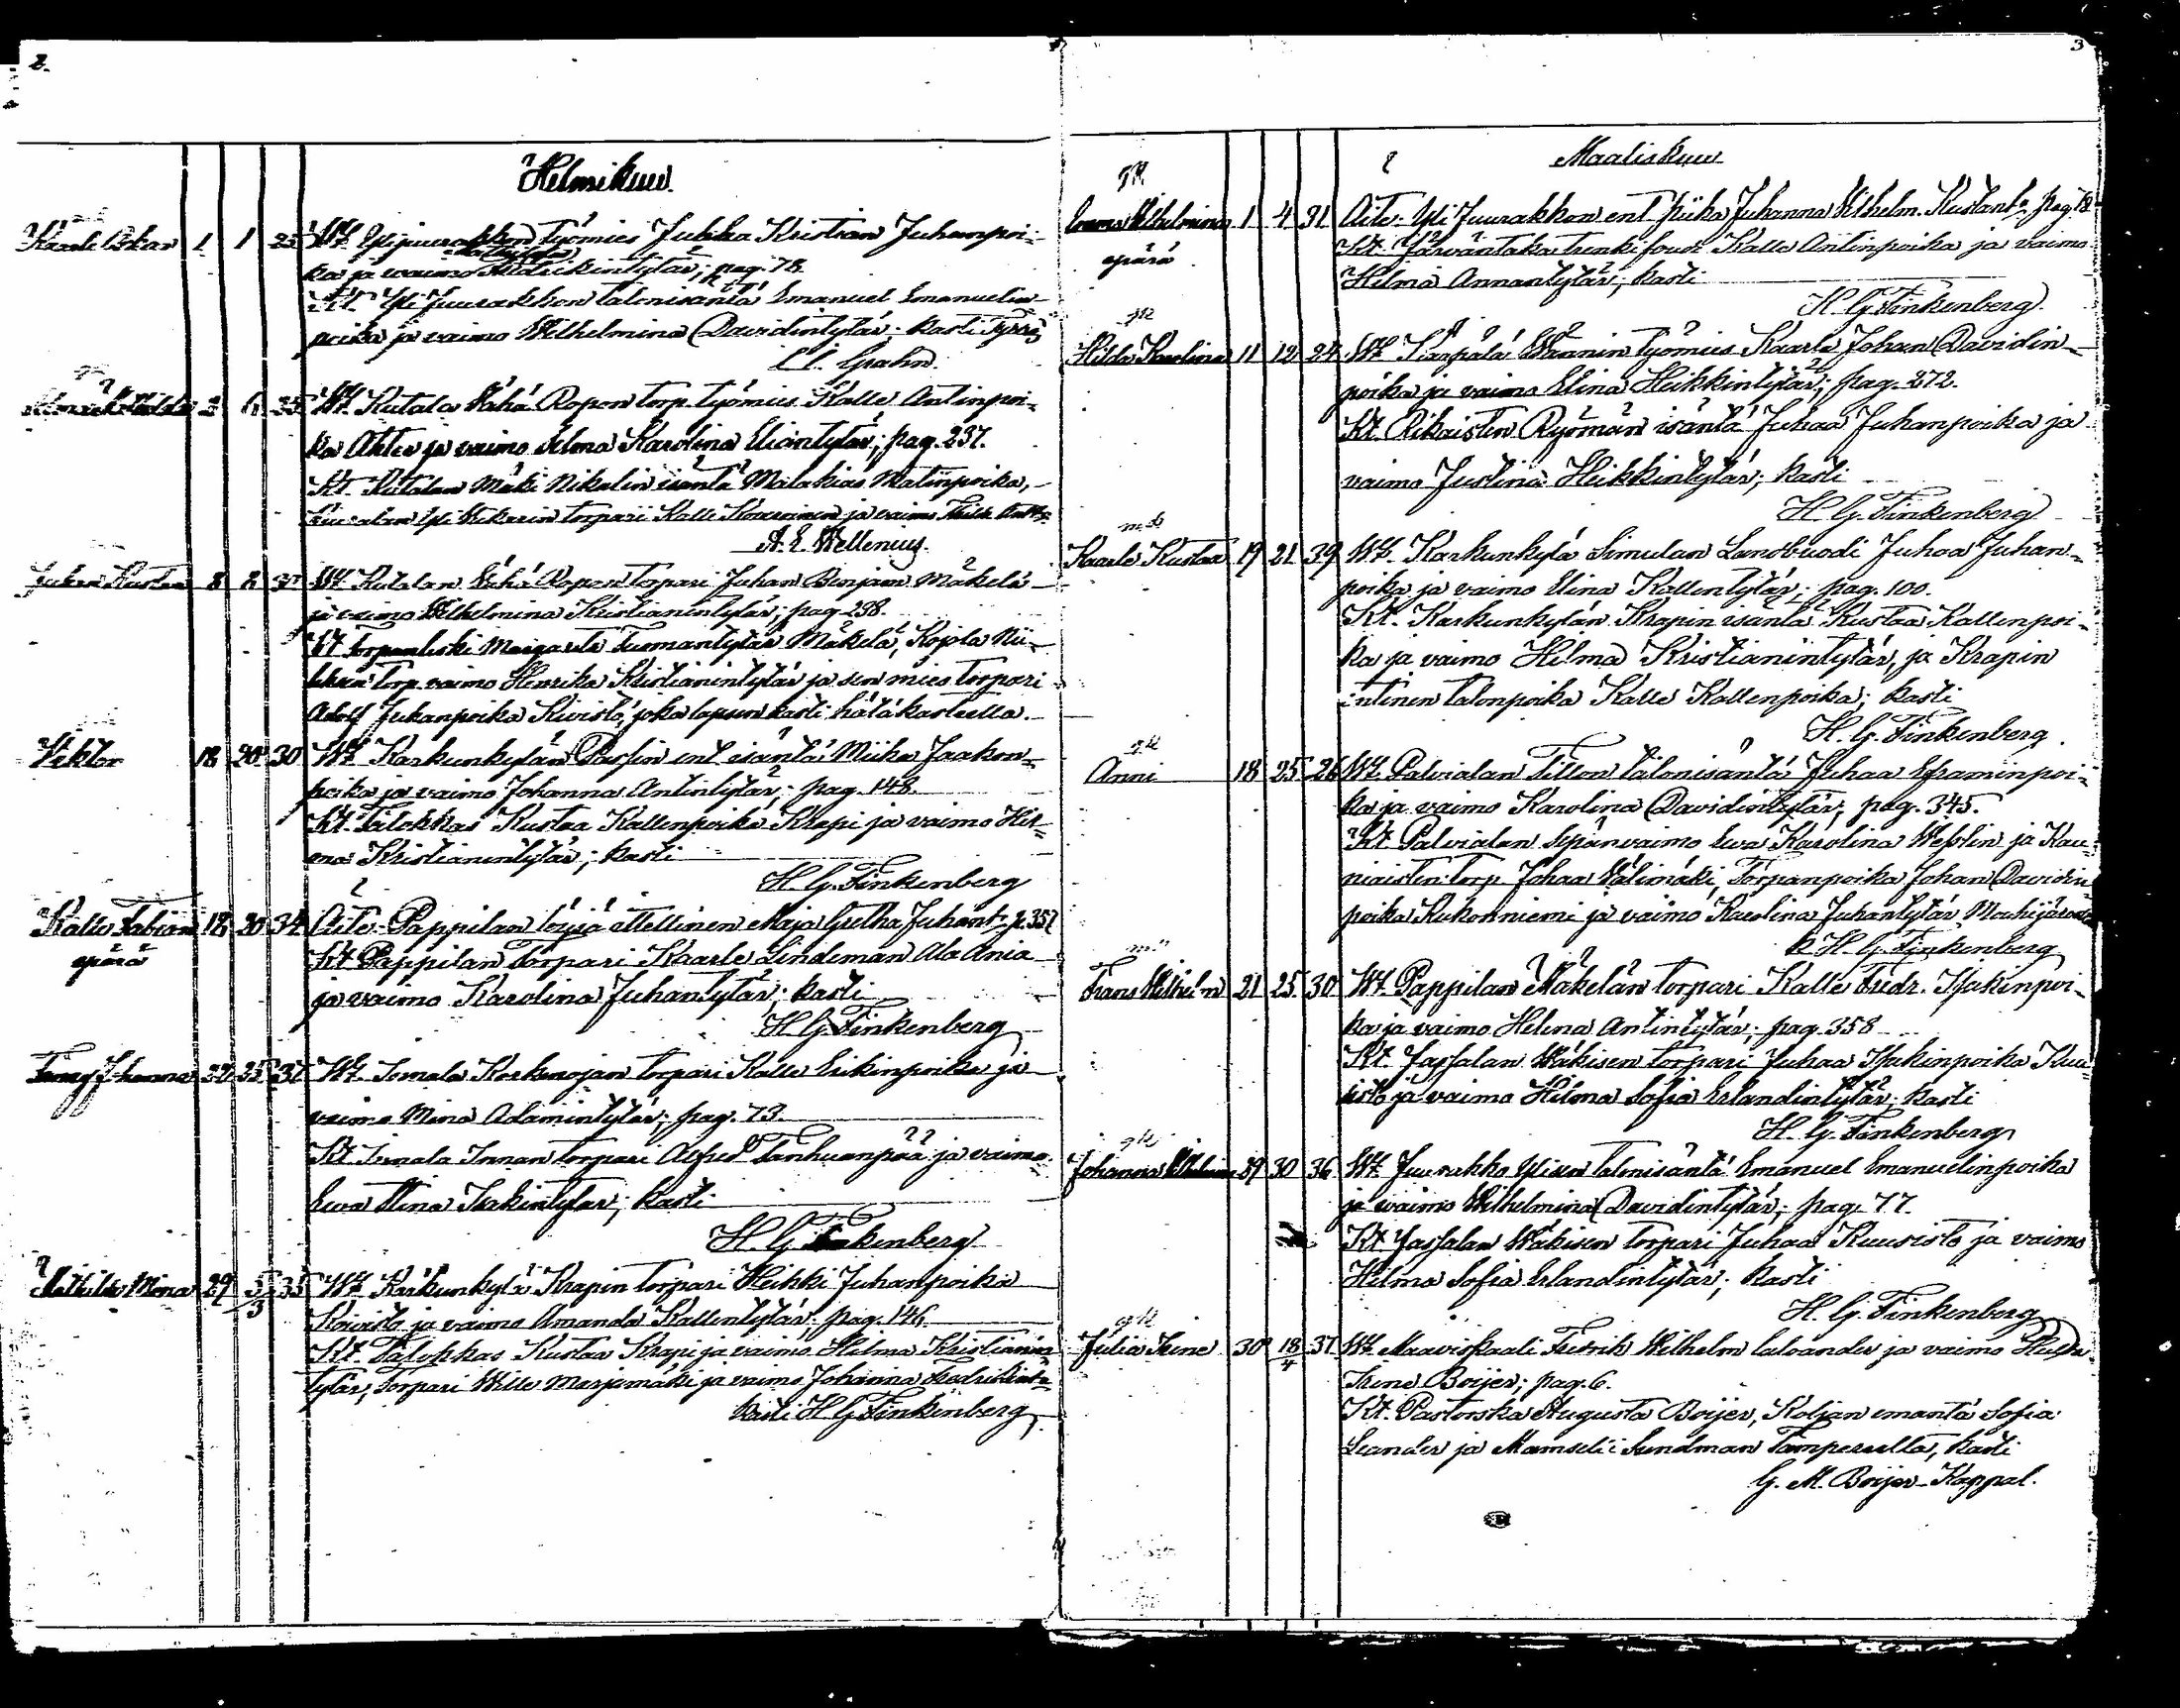 2.
Helmikuu
Kaarle Oskar 1 1 25 Wt. Ylijuurakkon työmies Juhka Kristian Juhanpoi-
ka ja waimo pag. 78.
Kt. Yli Juurakkon talonisäntä Emanuel Emanuelin-
poika ja vaimo Wilhelmina Davidintytär; kasti
Grahn.
2 6 35 Wt. Kutala Vähä Ropon torp. työmies Kalle Antinpoi-
ka Ahte ja vaimo Selma Karolina Eliantytär; pag. 237.
Kt. Kutalan Mäki Nikalin isäntä Malakias Matinpoika,
torpari Kalle ja vaimo
A. E. Wellenius.
Juhan Kustaa 8 8 Wt. Kutalan Vähä Ropon torpari Juhan Benjam. Mäkelä
ja vaimo Wilhelmina Kristianintytär; pag. 238.
Kt. Torpanleski Margareta Tuomantytär Mäkelä, Kojola Nii-
torp. vaimo Henrika Kristianintytär ja sen mies torpari
Adolf Juhanpoika Kivistö, joka lapsen kasti hätäkasteella.
Viktor 18 20 30 Wt. Karkunkylän ent isäntä Miika Jaakon-
poika ja vaimo Johanna Antintytär; pag. 148.
Kt. Talokkas Kustaa Kallenpoika Krapi ja vaimo Hil-
ma Kristianintytär; kasti
H. G. Finkenberg
Kalle Fabian 18 20 34 Äite. Pappilan itellinen Maja Gretha Juhant. p. 357
epärä Kt. Pappilan Torpari Kaarle Lindeman Ala Ania
ja vaimo Karolina Juhantytär; kasti
H. G. Finkenberg
Fanny Johanna 22 25 37 Wt. Tomala Korkenojan torpari Kalle Erkinpoika ja
vaimo Mina Adamintytär; pag. 73.
Kt. torpari Alfred Tanhuanpää ja vaimo
Ewa Stina Isakintytär; kasti
H. G. Finkenberg
Mathilda Mina 29 5/3 35 Wt. Karkunkylä Krapin torpari Heikki Juhanpoika
Koivisto ja vaimo Amanda Kallentytär; pag. 146.
Kt. Talokkas Kustaa Krapi ja vaimo Hilma Kristianin-
tytär, Torpari Wille Marjamäki ja vaimo Johanna
kasti H. G. Finkenberg
3
Maaliskuu
Emma Wilhelmina 1 4 31 Äite. Yli Juurakkon ent piika Juhanna Wilhelm. Kustant. pag. 78
epärä Kt. Kalle Antinpoika ja vaimo
Hilma Annantytär; kasti
H. G. Finkenberg
Hilda Karolina 11 12 24 Wt. Karpälä Wännin työmies Kaarle Johan Davidin-
poika ja vaimo Elina Heikkintytär; pag. 272.
Kt. Rikaisten Ryömän isäntä Juhaa Juhanpoika ja
vaimo Justina Heikkintytär; kasti
H. G. Finkenberg
Kaarle Kustaa 19 21 39 Wt. Karkunkylä Simulan Landbuodi Juhaa Juhan-
poika ja vaimo Elina Kallentytär; pag. 100.
Kt. Karkunkylän Krapin isäntä Kustaa Kallenpoi-
ka ja vaimo Hilma Kristianintytär, ja Krapin
entinen talonpoika Kalle Kallenpoika; kasti
H. G. Finkenberg
Anni 18 25 26 Wt. Palvialan Tillon talonisäntä Juhaa Eframinpoi-
ka ja vaimo Karolina Davidintytär; pag. 345.
Kt. Palvialan Sepänvaimo Ewa Karolina Weslin ja Kau-
niaisten torp. Johaa Välimäki, Torpanpoika Johan Davidin
poika Kukonniemi ja vaimo Karolina Juhantytär
k H. G. Finkenberg
Frans Wilhelm 21 25 30 Wt. Pappilan Mäkelän torpari Kalle Fredr. Isakinpoi-
ka ja vaimo Helena Antintytär; pag. 358
Kt. Jassalan Wäkisen torpari Juhaa Isakinpoika Kuu-
isto ja vaimo Hilma Sofia Erlandintytär; kasti
H. G. Finkenberg
Johanna Wilhelmina 29 30 36 Wt. Juurakko Ylisen talonisäntä Emanuel Emanuelinpoika
ja waimo Wilhelmina Davidintytär; pag. 77.
Kt. Jassalan Wäkisen torpari Juhaa Kuusisto ja vaimo
Hilma Sofia Erlandintytär; kasti
H. G. Finkenberg
Julia Irene 30 18/4 37 Wt. Maaviskaali Fredrik Wilhelm ja vaimo Hulda
Irene Boijer; pag. 6.
Kt. Pastorska Augusta Boijer, Koljan emäntä Sofia
Leander ja Mamselii Sundman Tampereelta, kasti
G. M. Boijer Kappal.